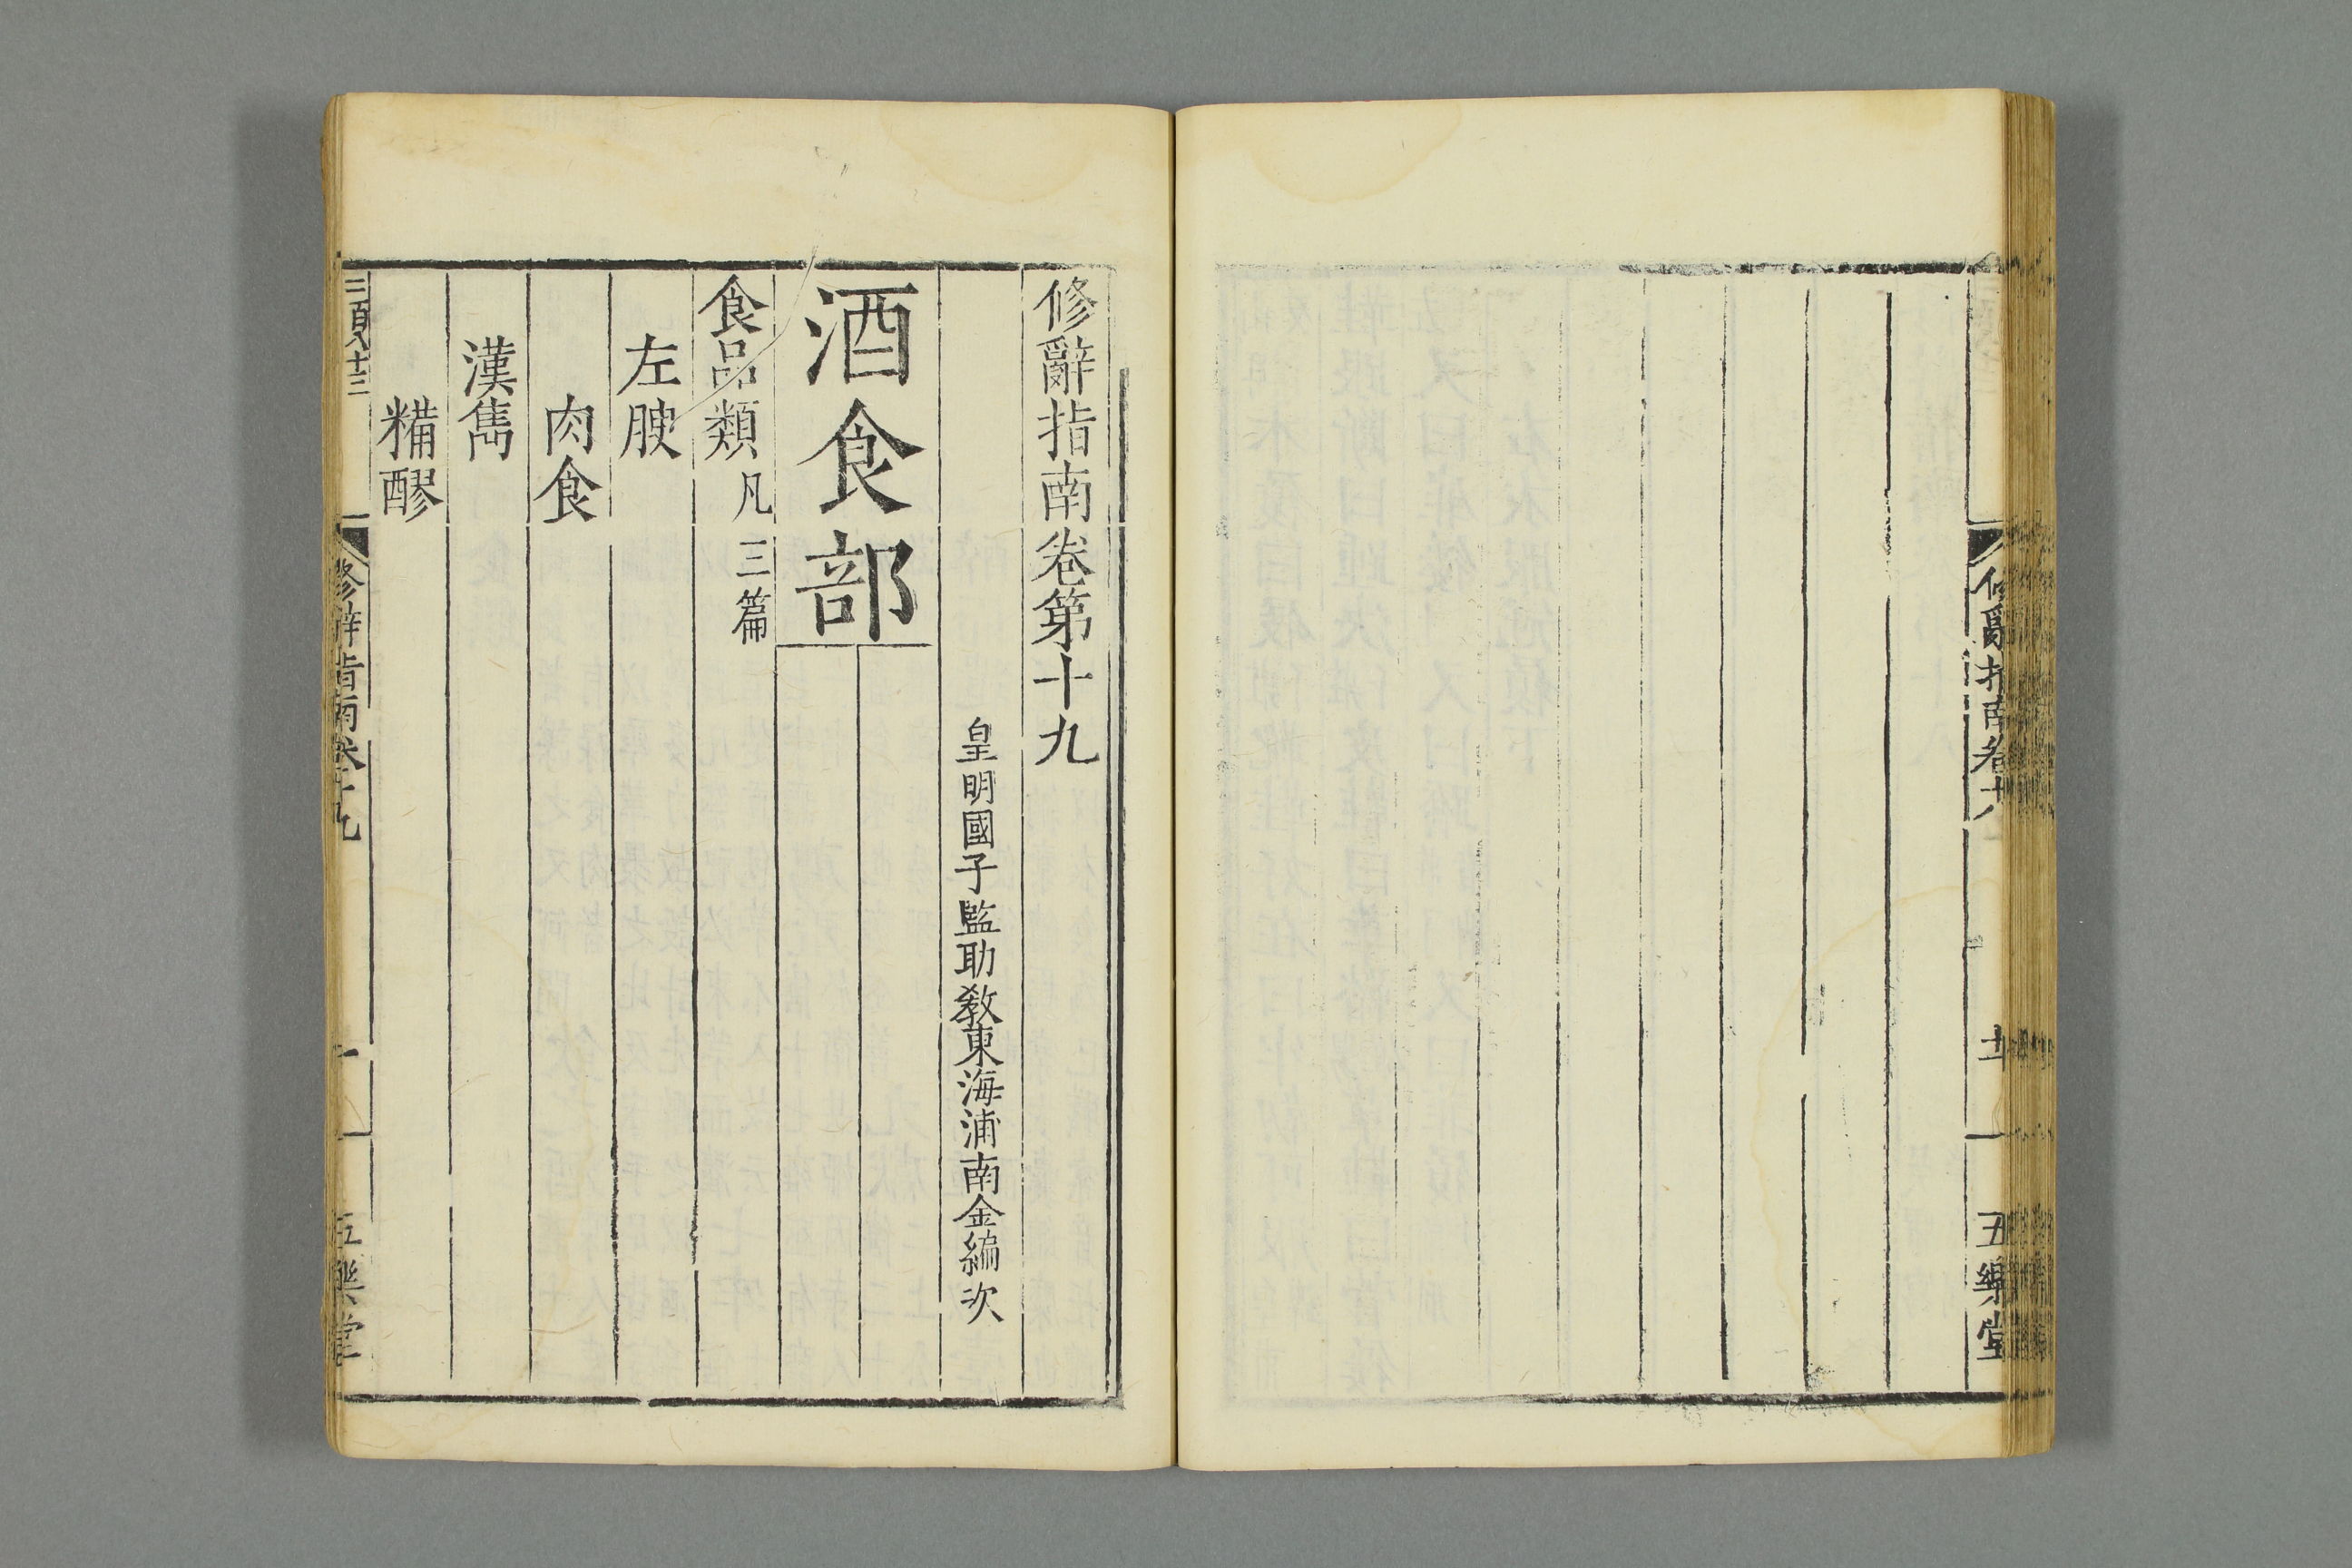 修辭指南卷十八
十一
五樂堂
修辭指南卷第十九
皇明國子監助教東海浦南金編次
酒食部
食品類 凡三篇
左腴
肉食
漢雋
糒醪
修辭指南卷十九
一
五樂堂